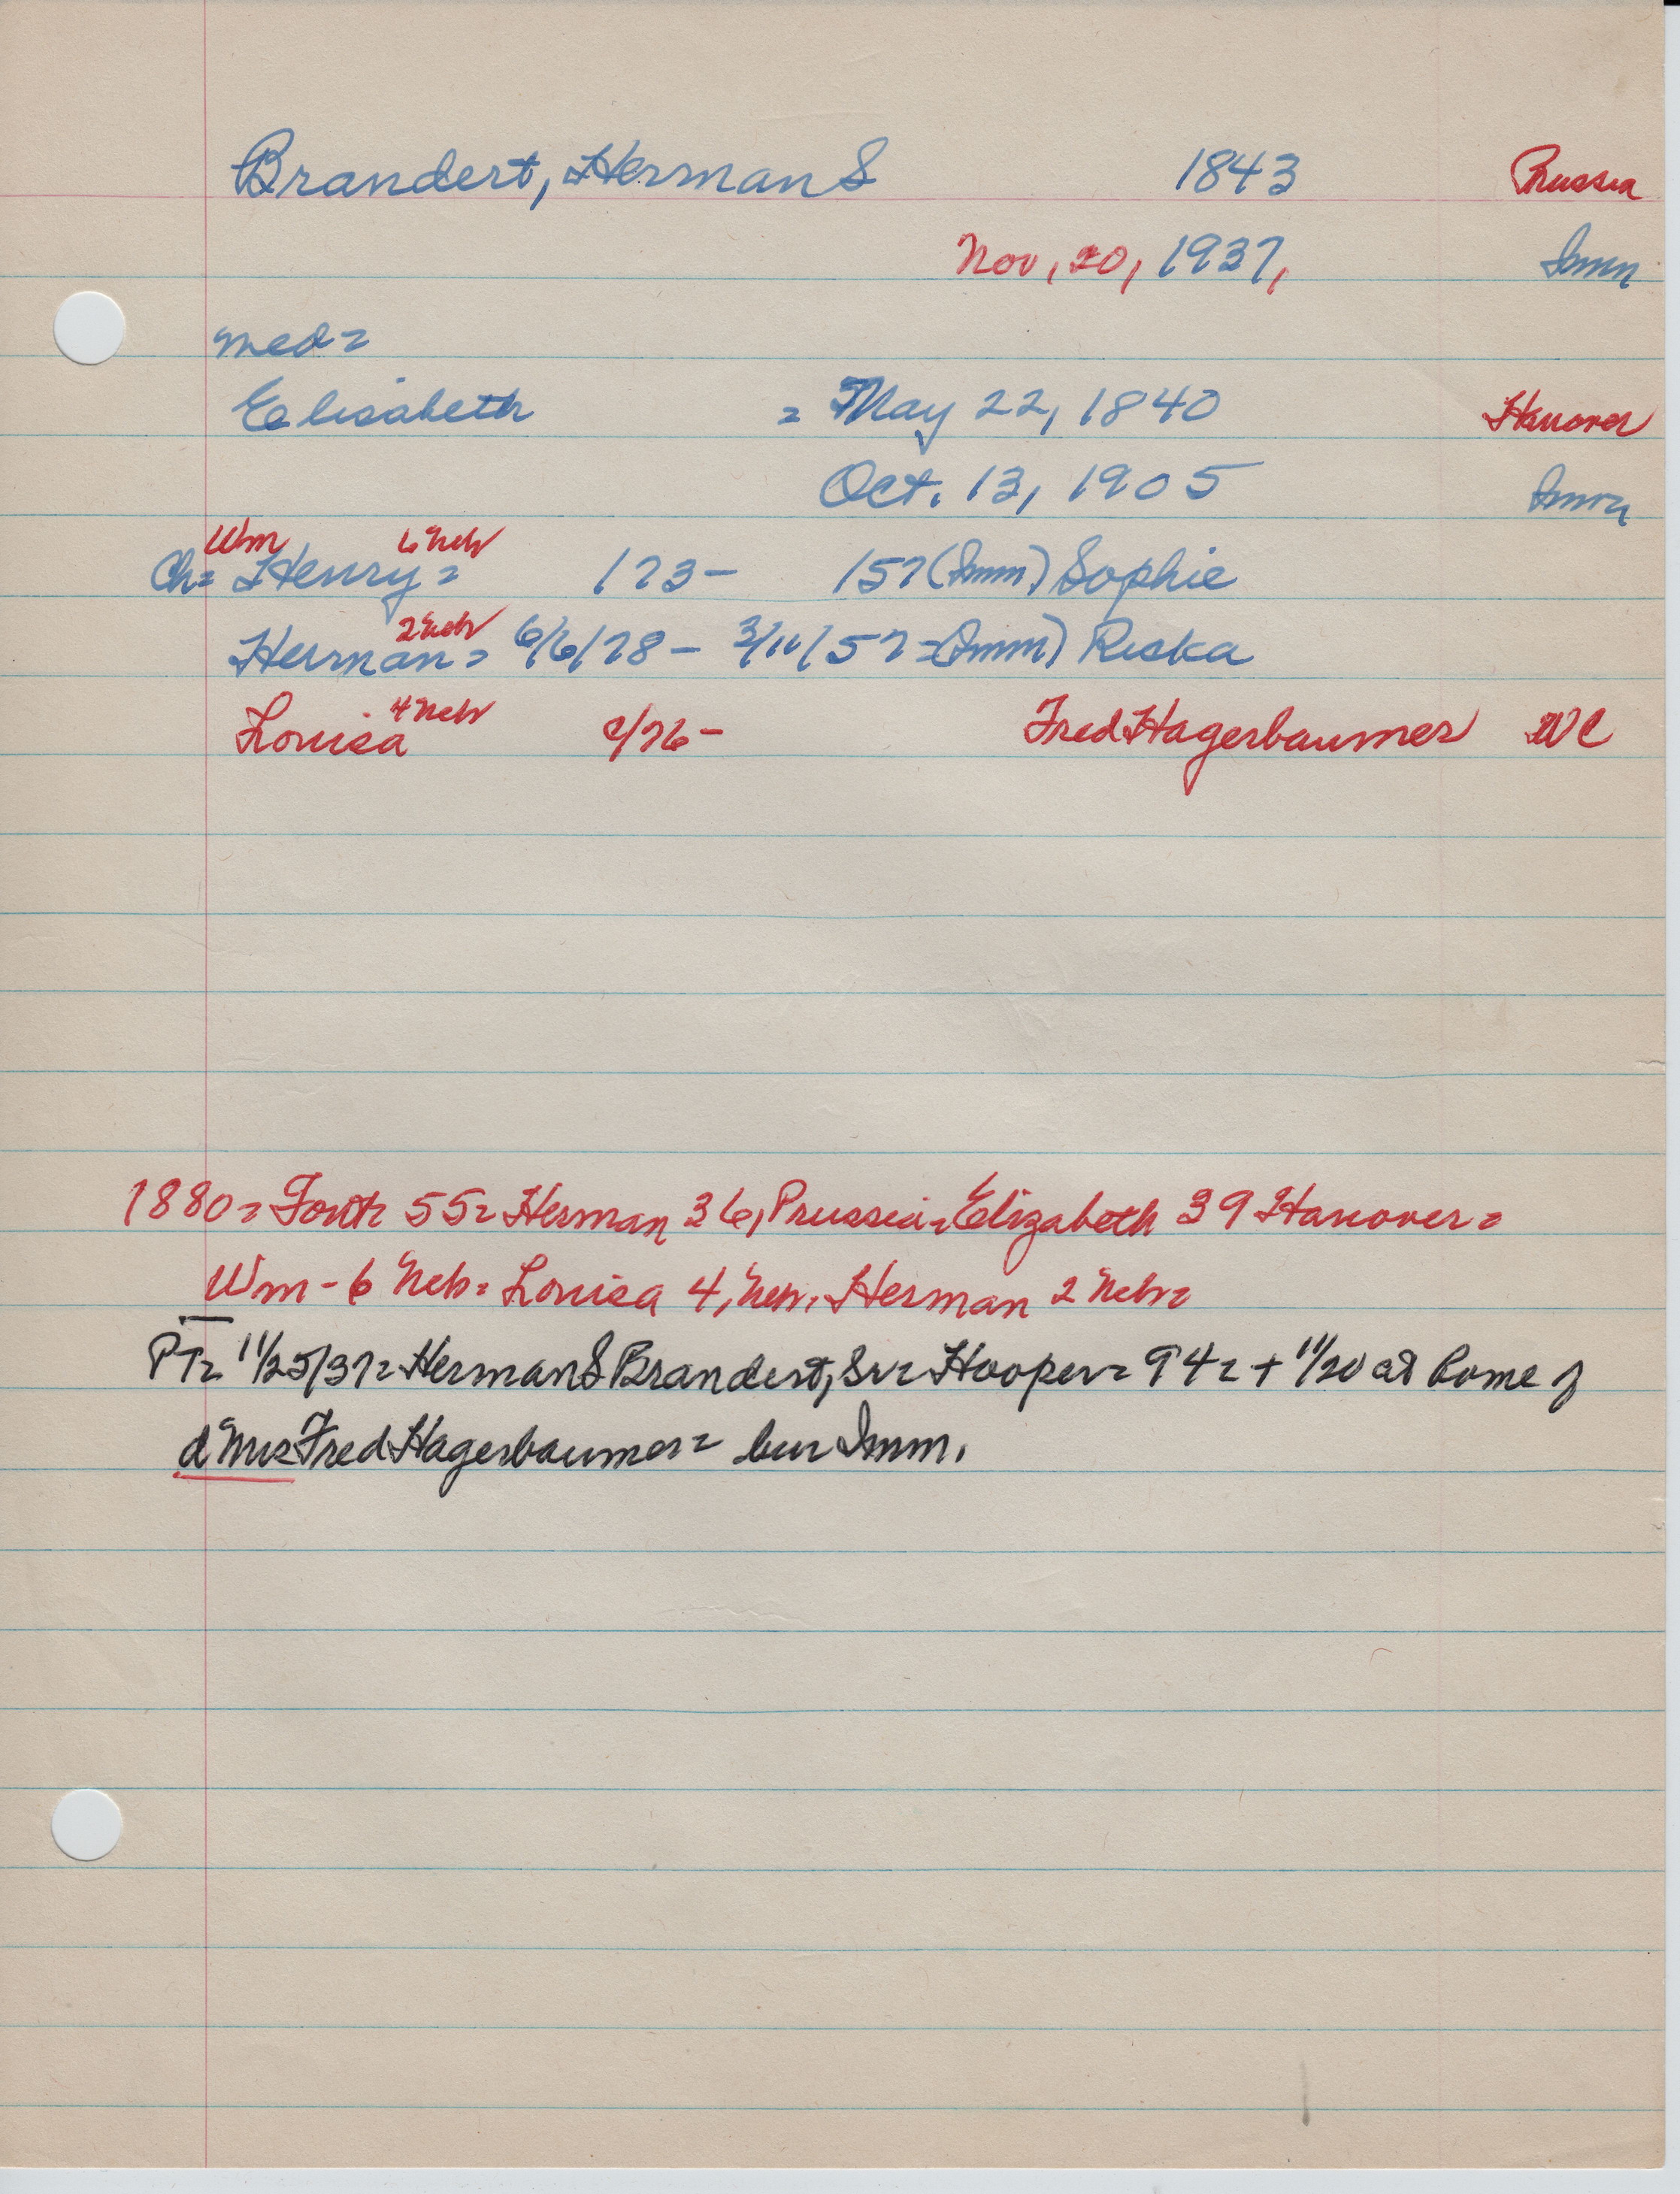 Brandert, Herman S 1843 Prussia
Nov, 20, 1937, Imm
med=
Elisabeth = May 22, 1840 Hanover
Oct. 13, 1905 Imm
Wm 6 Neb
Ch= Henry= 173- 157 (Imm) Sophie
2 Neb
Herman= 6/6/78- 3/10/57=(Imm) Riska
4 Neb
Louisa /76- Fred Hagerbaumer WC
1880= Font 55= Herman 36, Prussia= Elizabeth 39 Hanover=
Wm-6 Neb= Louisa 4, Neb, Herman 2 Neb=
PT= 11/25/37= Herman S Brandert, Sr= Hooper= 94= + 11/20 at home of
d Mrs Fred Hagerbaumer= bur Imm.